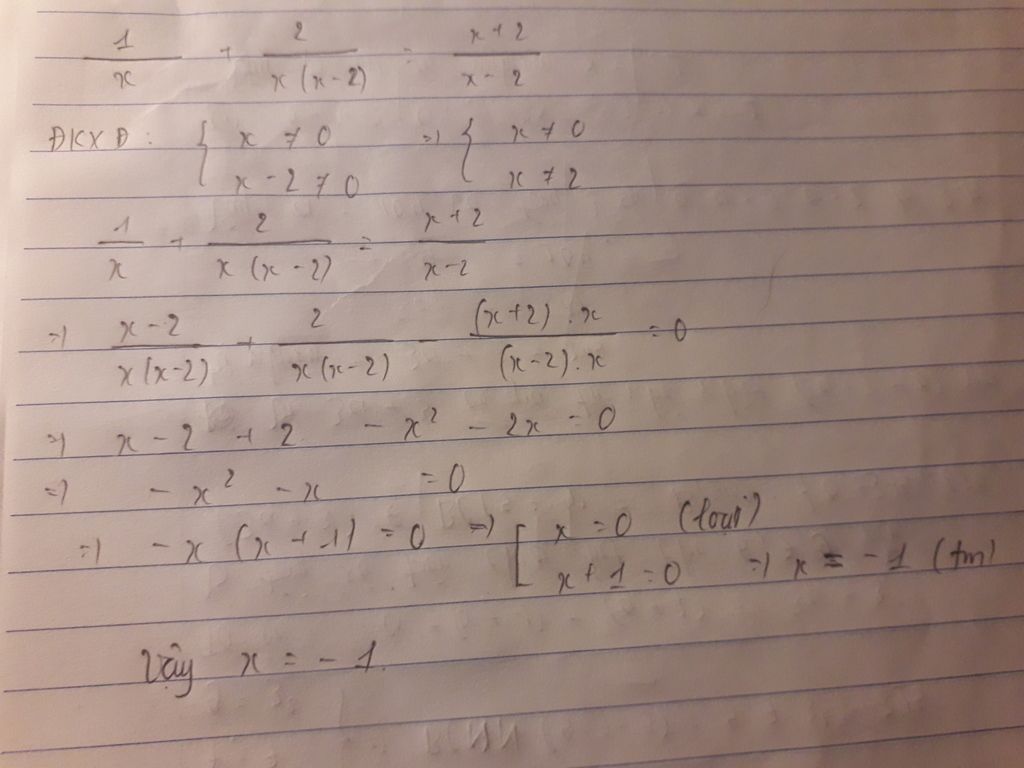 1/x + 2/x(x-2) = x+2/x-2
ĐKXĐ: { x ≠ 0 => { x ≠ 0
x - 2 ≠ 0 x ≠ 2
1/x + 2/x(x-2) = x+2/x-2
=> x-2/x(x-2) + 2/x(x-2) - (x+2).x/(x-2).x = 0
=> x - 2 + 2 - x² - 2x = 0
=> - x² - x = 0
=> - x (x + 1) = 0 => [ x = 0 (loại)
x + 1 = 0 => x = - 1 (tm)
Vậy x = - 1.